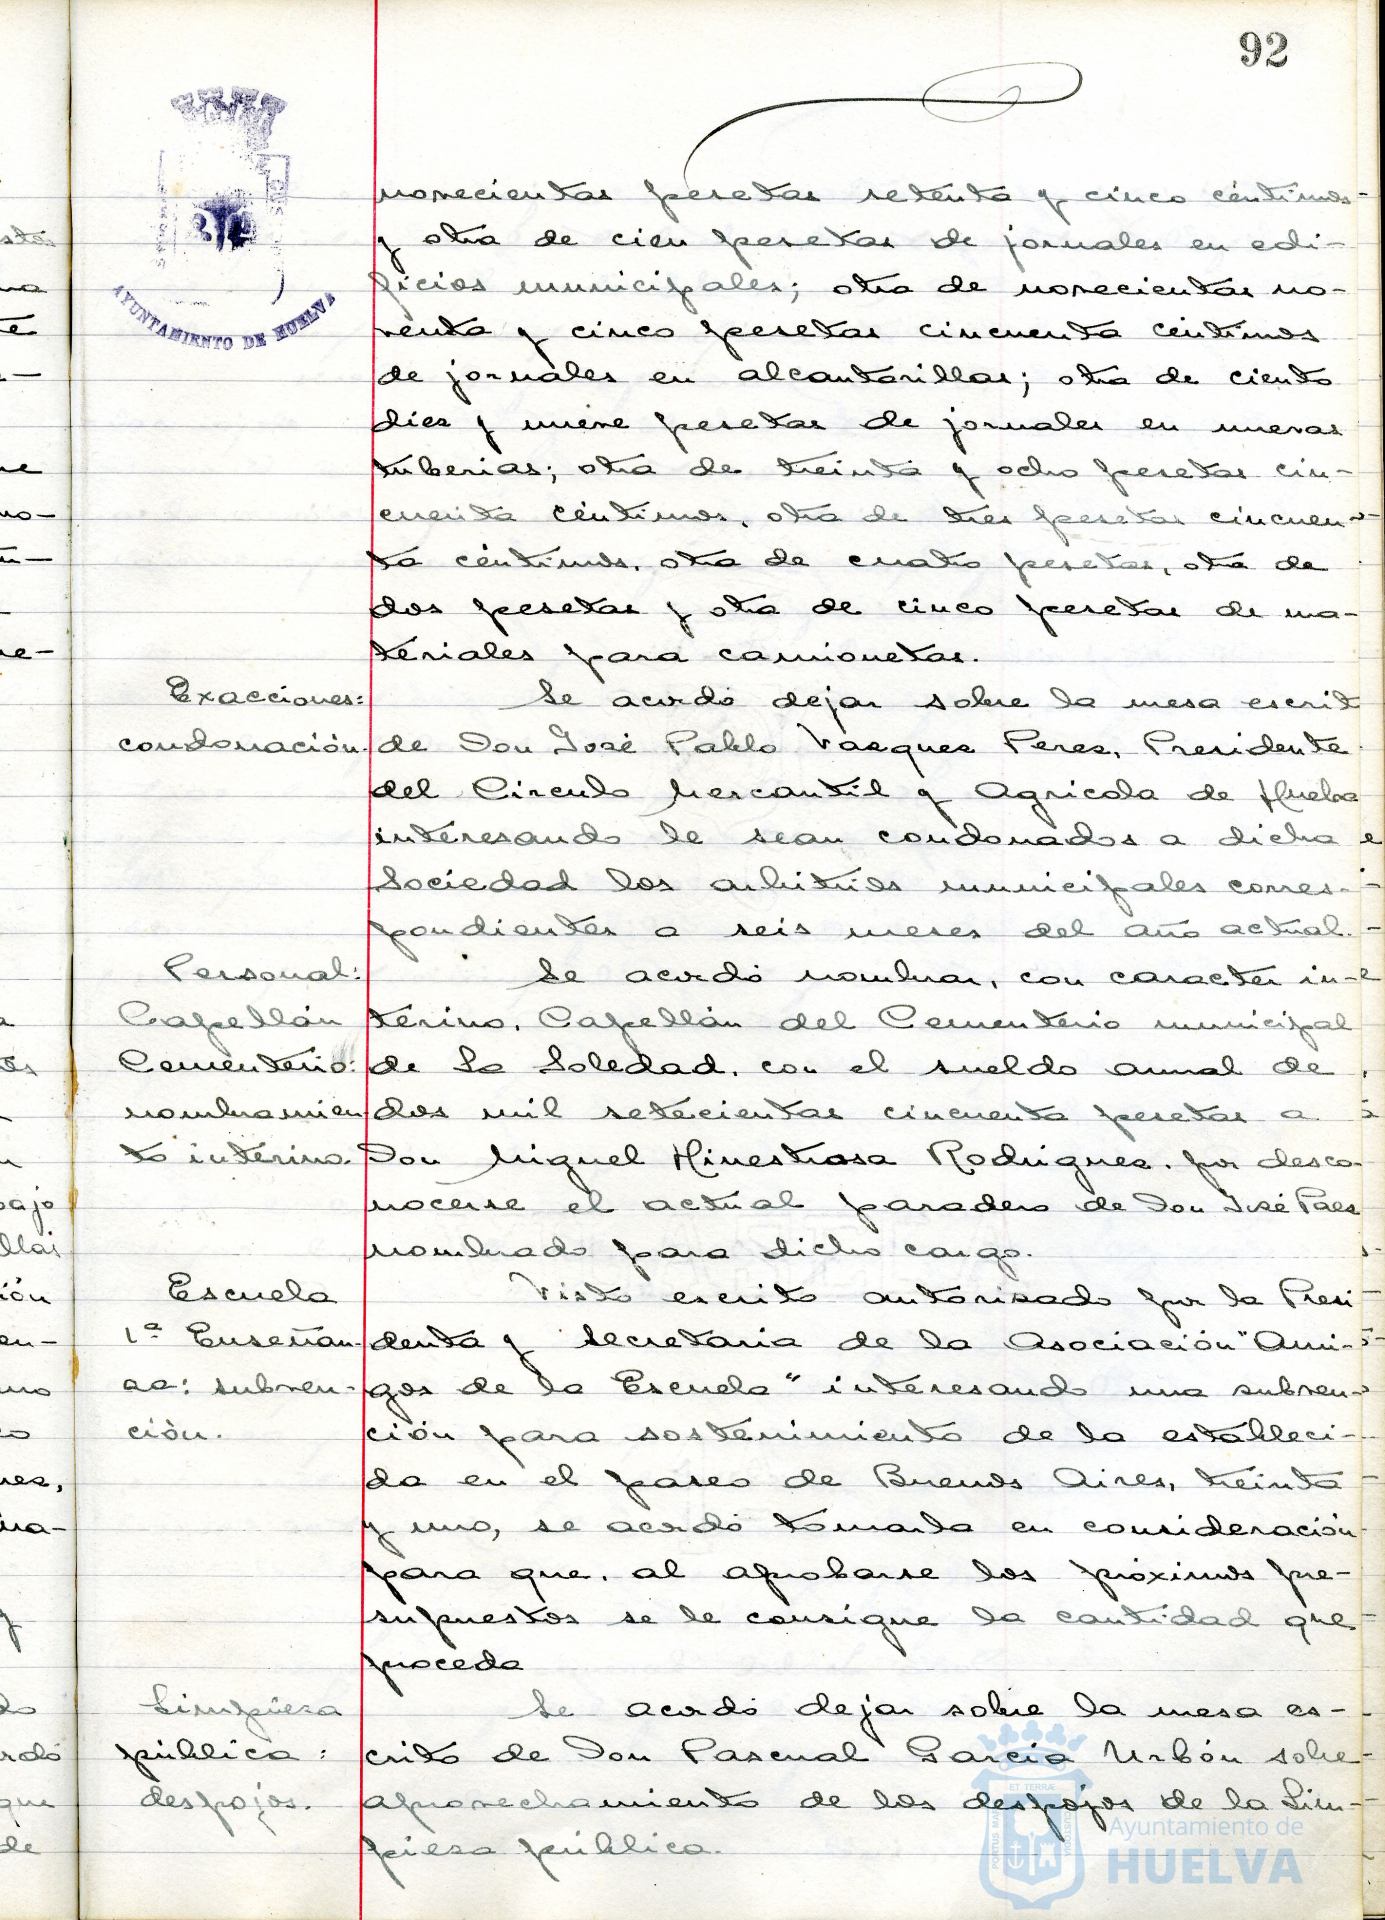 92
AYUNTAMIENTO DE HUELVA
novecientas pesetas setenta y cinco céntimos
y otra de cien pesetas de jornales en edi-
ficios municipales; otra de novecientas no-
venta y cinco pesetas cincuenta céntimos
de jornales en alcantarillas; otra de ciento
diez y nueve pesetas de jornales en nuevas
tuberias; otra de treinta y ocho pesetas cin-
cuenta céntimos, otra de tres pesetas cincuen-
ta céntimos, otra de cuatro pesetas, otra de
dos pesetas y otra de cinco pesetas de ma-
teriales para camionetas.
Exacciones:
condonación.
Se acordó dejar sobre la mesa escrito
de Don José Pablo Vazquez Perez, Presidente
del Circulo Mercantil y Agricola de Huelva
interesando le sean condonados a dicha
Sociedad los arbitrios municipales corres-
pondientes a seis meses del año actual.
Personal:
Capellán
Cementerio:
nombramien
to interino.
Se acordó nombrar, con caracter in-
terino, Capellán del Cementerio municipal
de La Soledad, con el sueldo anual de
dos mil setecientas cincuenta pesetas a
Don Miguel Hinestrosa Rodriguez, por desco-
nocerse el actual paradero de Don José Paez
nombrado para dicho cargo.
Escuela
1ª Enseñan-
za: subven-
ción.
Visto escrito autorizado por la Presi
denta y Secretaria de la Asociación "Ami-
gos de la Escuela" interesando una subven-
ción para sostenimiento de la estableci-
da en el paseo de Buenos Aires, treinta
y uno, se acordó tomarla en consideración
para que, al aprobarse los próximos pre-
supuestos se le consigne la cantidad que
proceda
Limpieza
pública:
despojos.
Se acordó dejar sobre la mesa es-
crito de Don Pascual García Urbón sobre
aprovechamiento de los despojos de la Lim-
pieza pública.
Ayuntamiento de
HUELVA